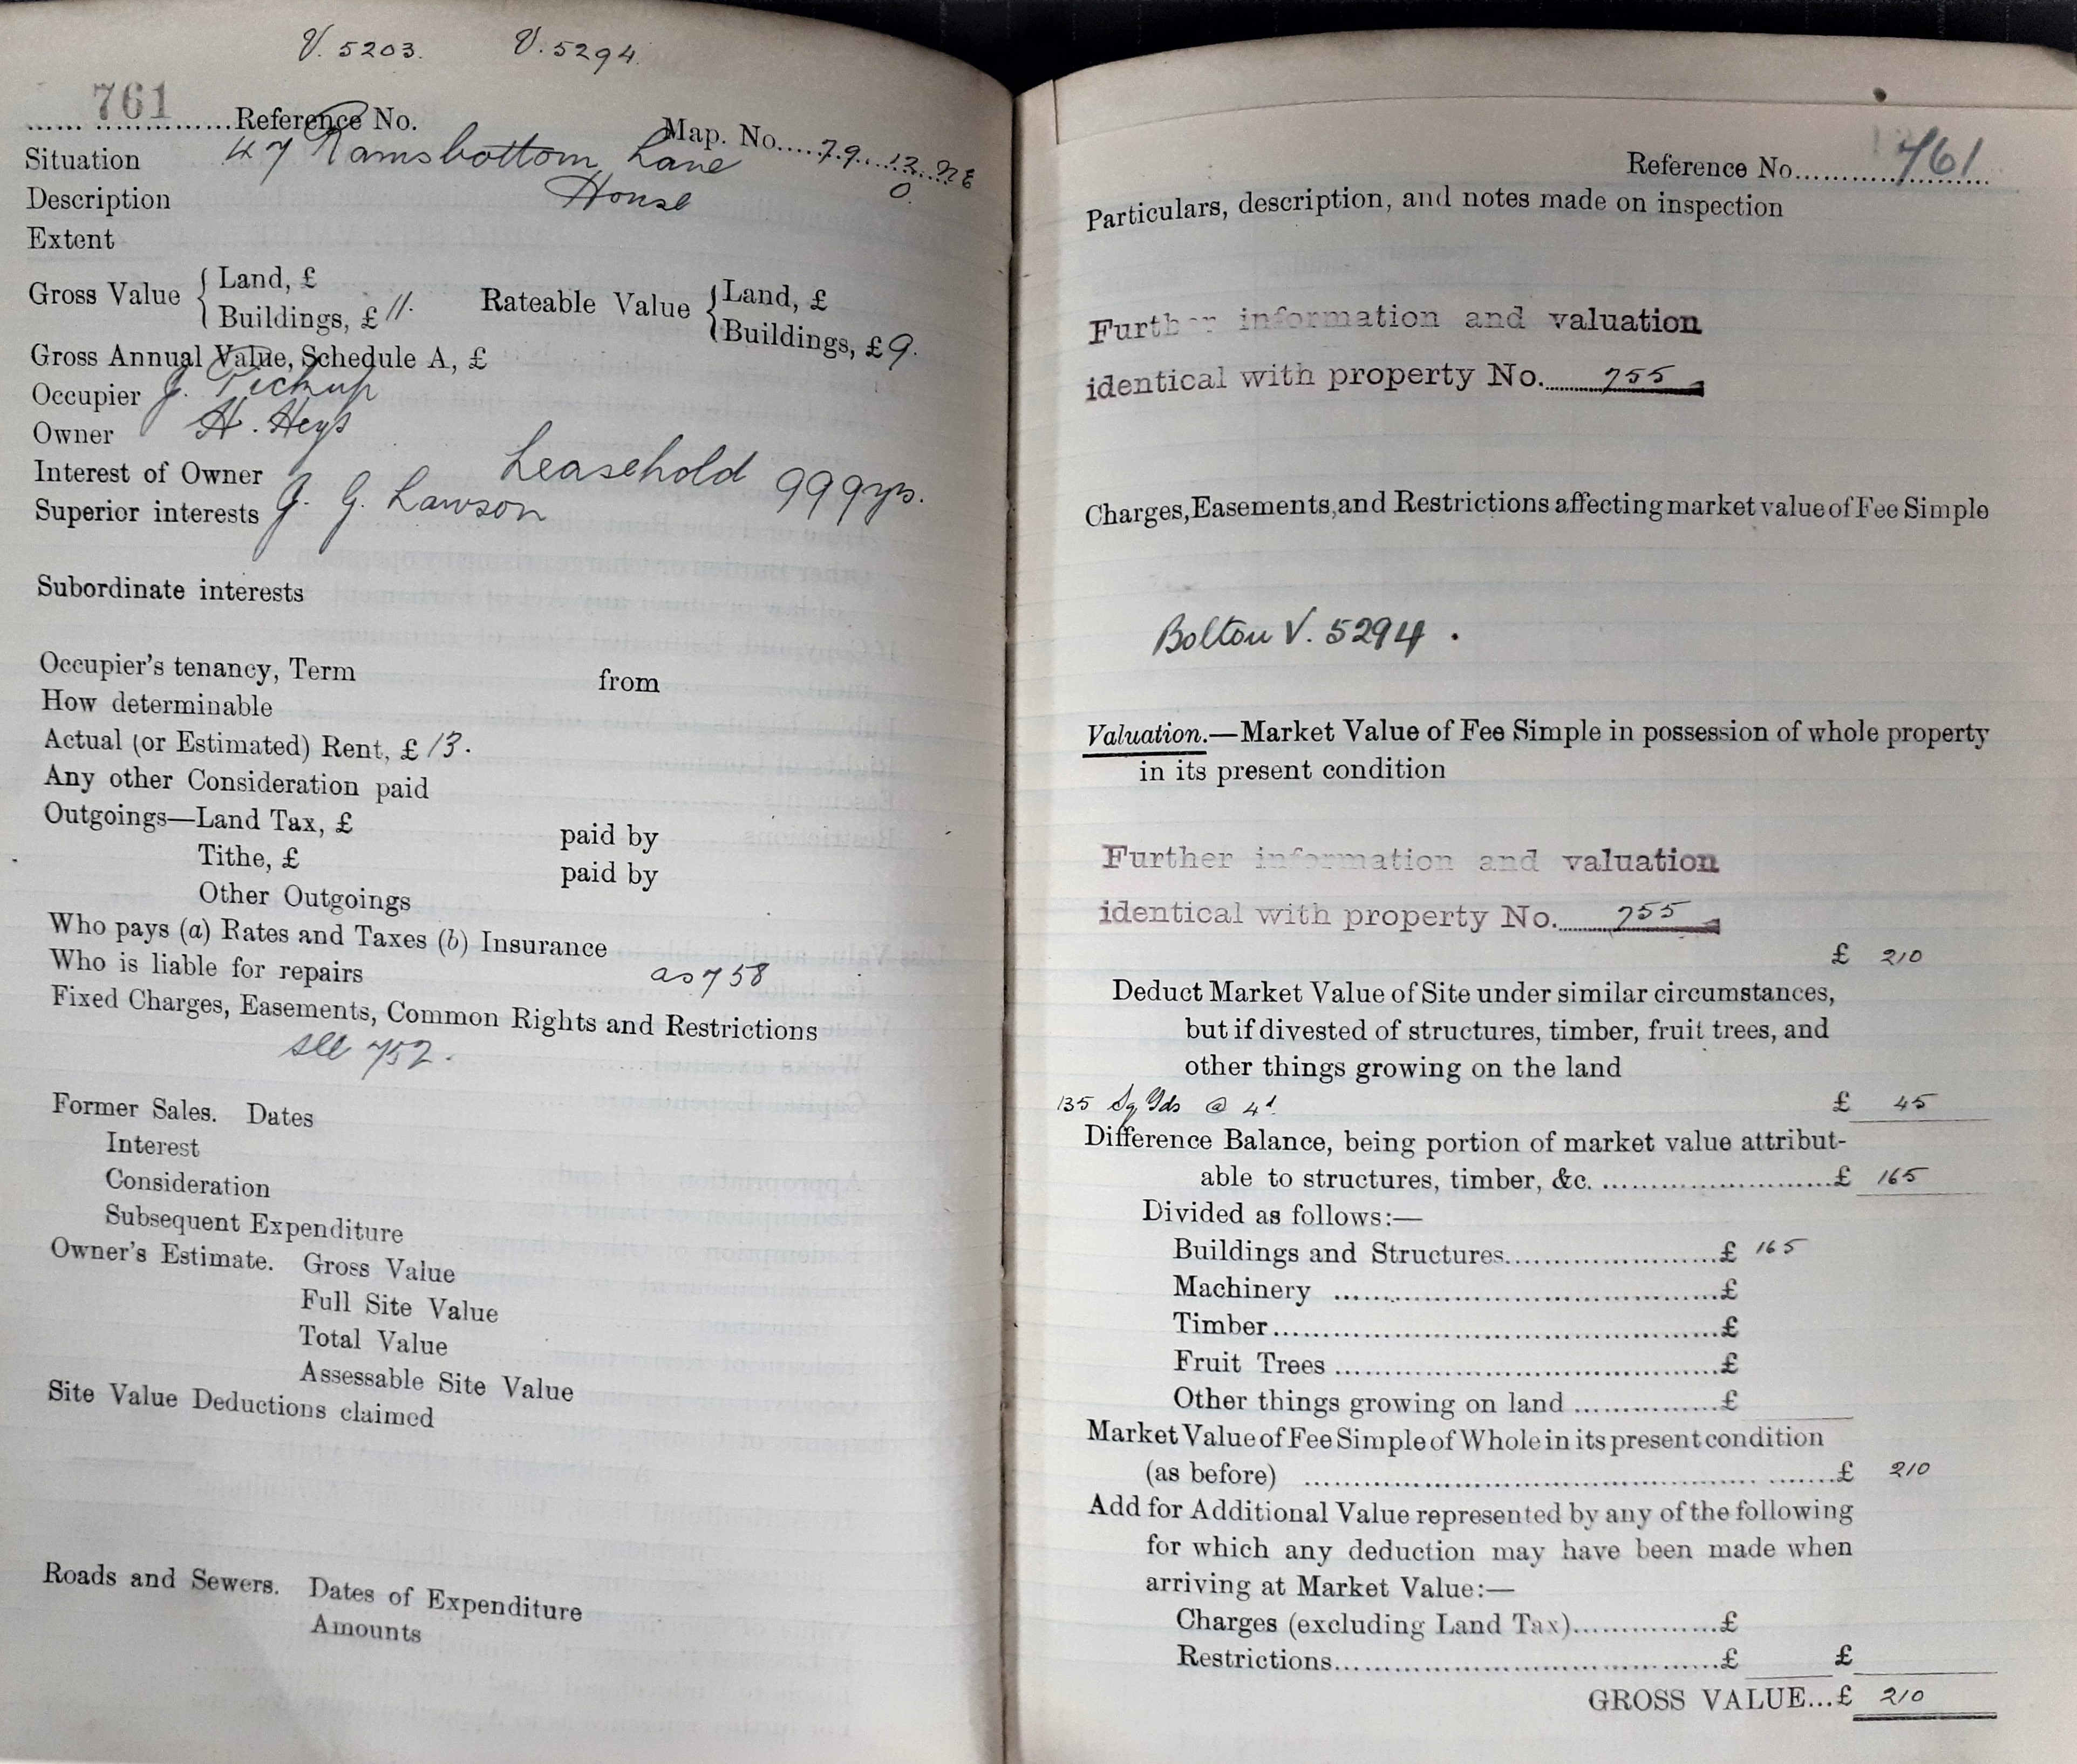 V. 5203. V. 5294.
761
Reference No. Map. No. 79. 13. NE
Situation 47 Ramsbottom Lane 0.
Description House
Extent
Gross Value { Land, £ Rateable Value { Land, £
Buildings, £ 11. Buildings, £ 9.
Gross Annual Value, Schedule A, £
Occupier J. Pickup
Owner H. Heys
Interest of Owner Leasehold 999 yrs.
Superior interests J. G. Lawson
Subordinate interests
Occupier's tenancy, Term from
How determinable
Actual (or Estimated) Rent, £ 13.
Any other Consideration paid
Outgoings—Land Tax, £ paid by
Tithe, £ paid by
Other Outgoings
Who pays (a) Rates and Taxes (b) Insurance
Who is liable for repairs as 758
Fixed Charges, Easements, Common Rights and Restrictions
see 752.
Former Sales. Dates
Interest
Consideration
Subsequent Expenditure
Owner's Estimate. Gross Value
Full Site Value
Total Value
Assessable Site Value
Site Value Deductions claimed
Roads and Sewers. Dates of Expenditure
Amounts
Reference No. 761
Particulars, description, and notes made on inspection
Further information and valuation
identical with property No. 755
Charges, Easements, and Restrictions affecting market value of Fee Simple
Bolton V. 5294.
Valuation.—Market Value of Fee Simple in possession of whole property
in its present condition
Further information and valuation
identical with property No. 755
£ 210
Deduct Market Value of Site under similar circumstances,
but if divested of structures, timber, fruit trees, and
other things growing on the land
135 Sq Yds @ 4d £ 45
Difference Balance, being portion of market value attribut-
able to structures, timber, &c. £ 165
Divided as follows:—
Buildings and Structures £ 165
Machinery £
Timber £
Fruit Trees £
Other things growing on land £
Market Value of Fee Simple of Whole in its present condition
(as before) £ 210
Add for Additional Value represented by any of the following
for which any deduction may have been made when
arriving at Market Value:—
Charges (excluding Land Tax) £
Restrictions £ £
GROSS VALUE...£ 210